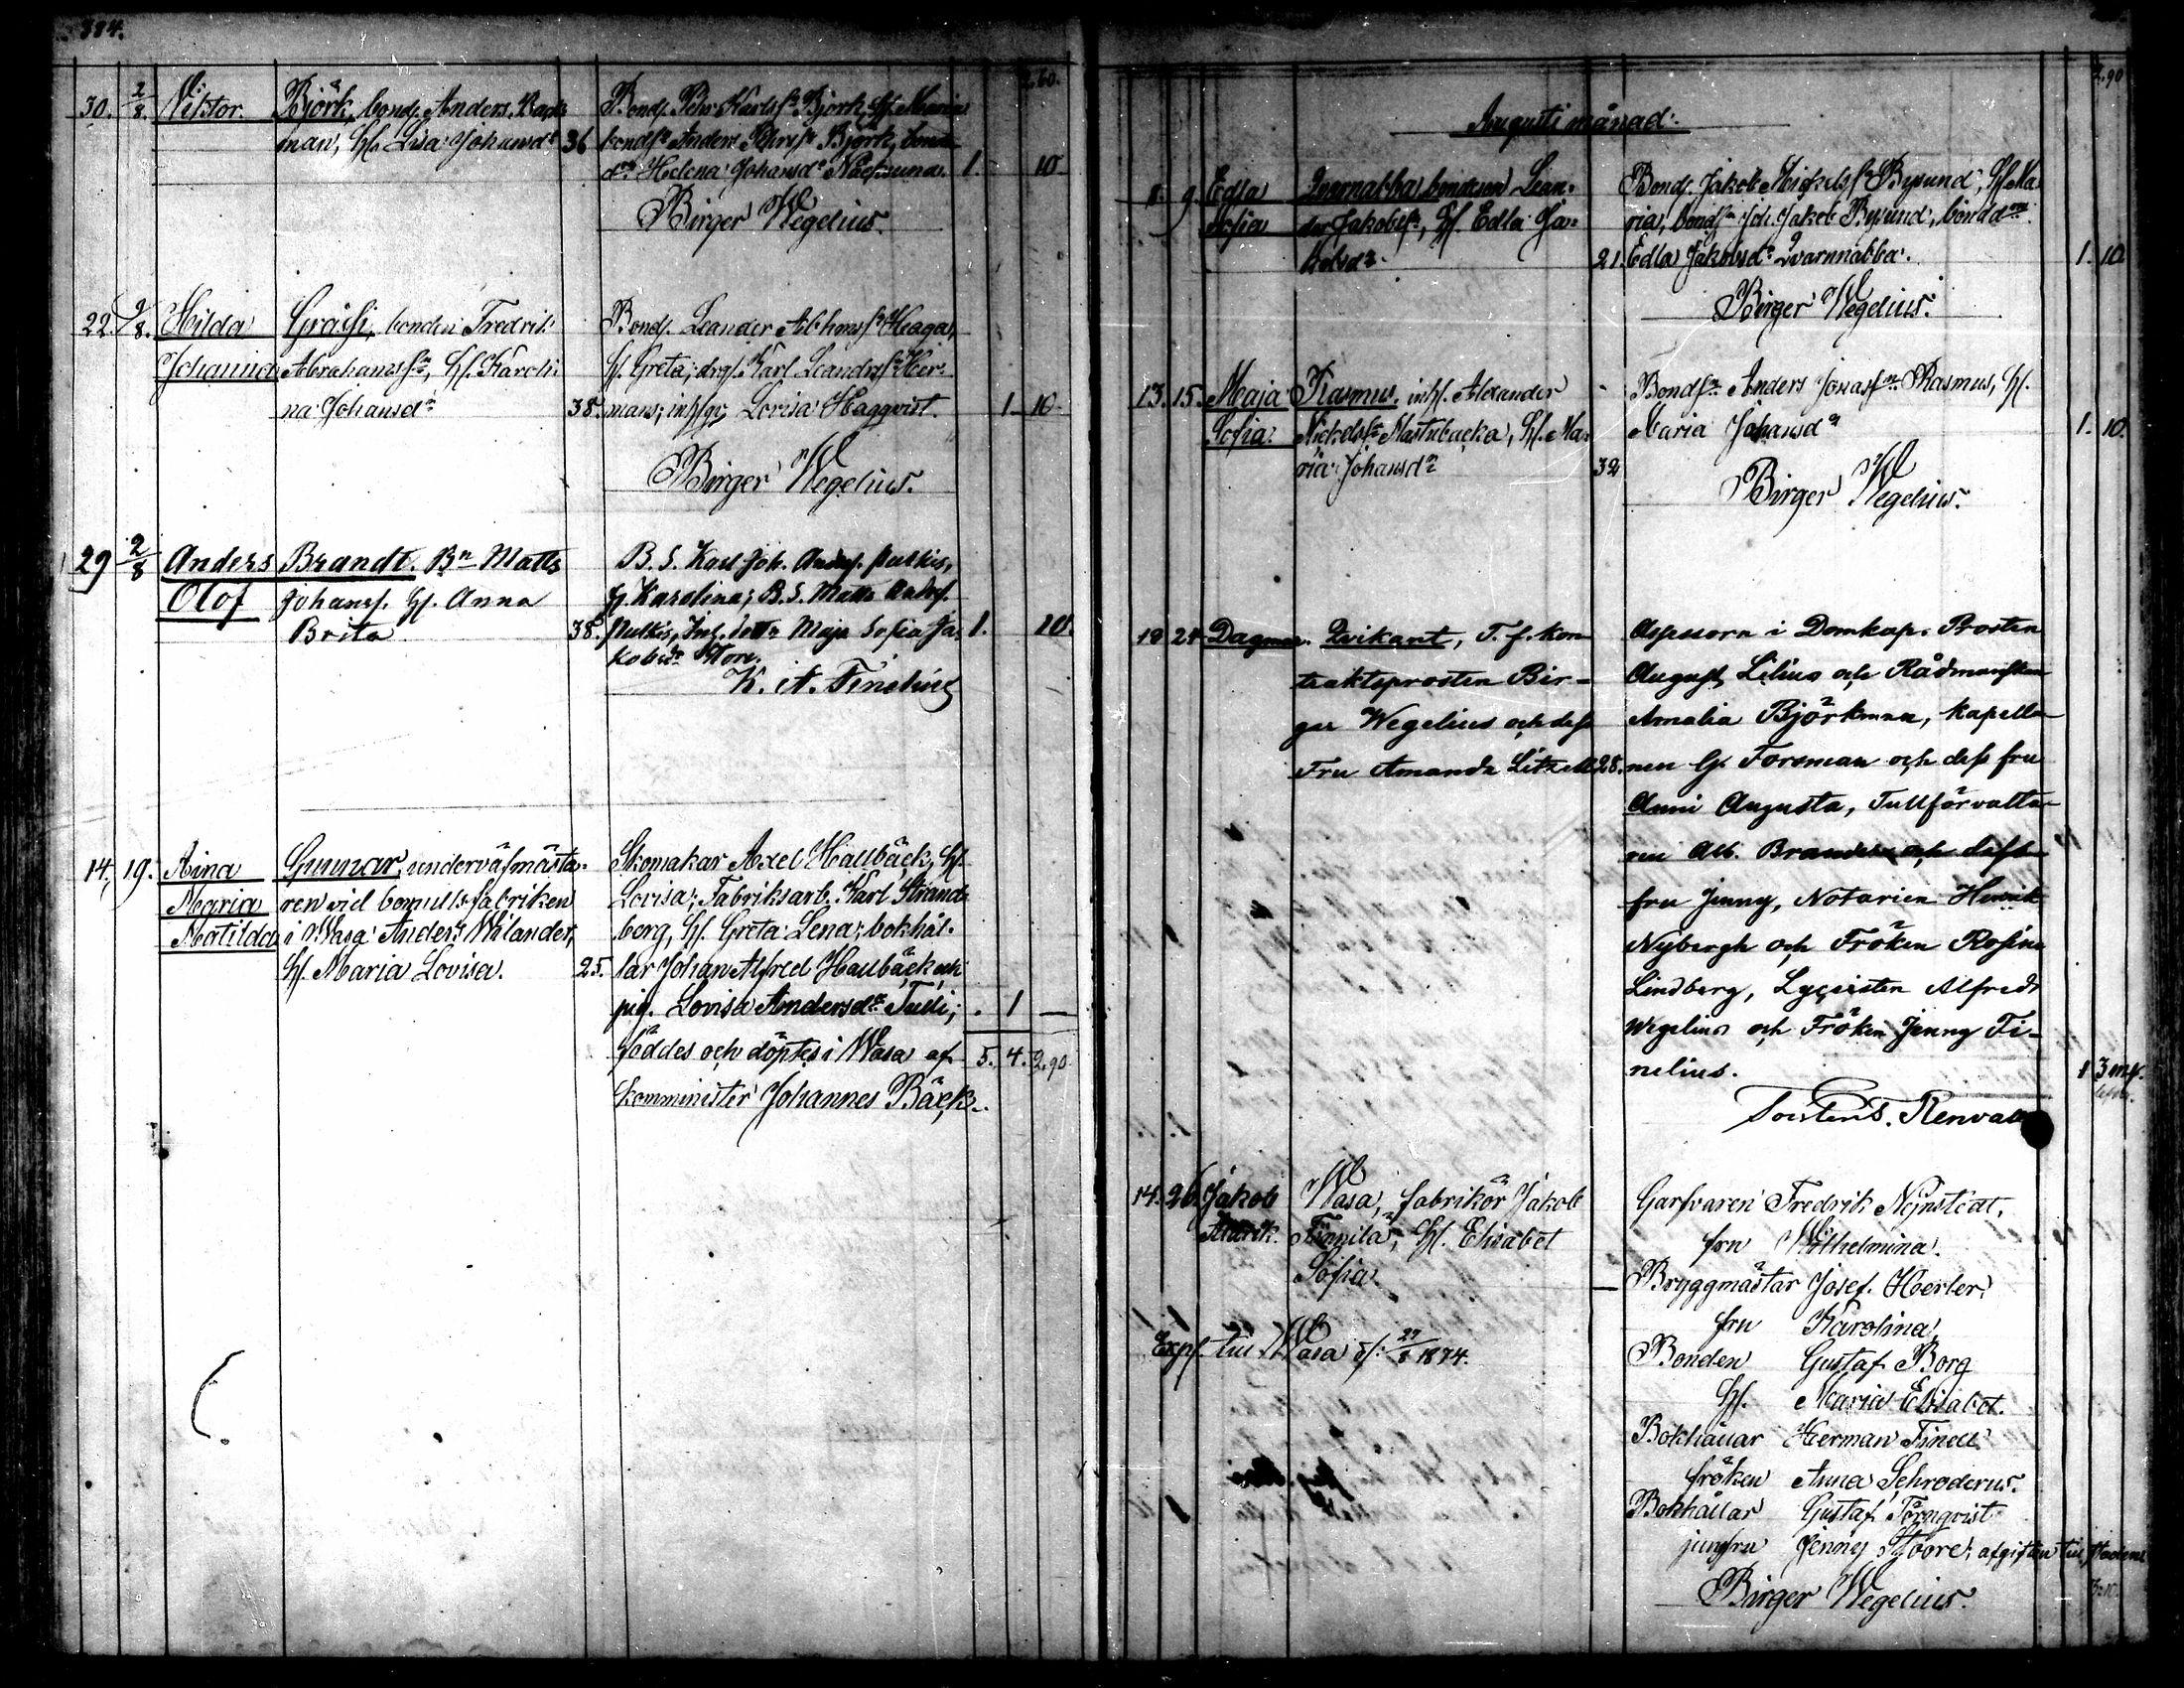 384.
2,60.
30. 2/8. Viktor. Björk, bond. Anders Back-
man, Hu. Lisa Johansdr 36
Bonds. Pehr Karlssn Björk, Hu. Maria
bondsn Anders Pehrssn Björk, bond-
dr Helena Johansdr Næssund. 1. 10
Birger Wegelius.
22. 9/8. Hilda Gräsi, bonden Fredrik
Johanna Abrahamssn, Hu. Karoli-
na Johansdr 38.
Bonds. Leander Abhamssn Haaga,
Hu. Greta; drg. Karl Leanderssn Her-
mans; Lovisa Hagqvist. 1. 10
Birger Wegelius.
29 2/8 Anders Brandt. Bn Matts
Olof Johanss. Hu. Anna
Brita 38.
B. S. Karl Joh. Anderss. Pulkis,
H. Karolina; B. S. Matts Anderss.
Pulkis, Inh. dottr Maja Sofia Ja-
kobsdr Store. 1. 10.
K. A. Finelius
14. 19. Aina Gunnar, underväfmästa-
Maria ren vid bomullsfabriken
Matilda i Wasa Anders Wilander,
Hu. Maria Lovisa. 25.
Skomakar Axel Hallbäck, Hu.
Lovisa; Fabriksarb. Karl Strand-
berg, Hu. Greta Lena; bokhål-
lar Johan Alfred Hallbäck och
pig. Lovisa Andersdr Tulli; . 1 —
föddes och döptes i Wasa af 5. 4. 2,90
Komminister Johannes Bäck.
2,90
Augusti månad.
8. 9. Edla Qvarnabba bondesn Lean-
Sofia der Jakobssn, Hu. Edla Ja-
kobsdr 21.
Bonds. Jakob Mickelssn Bysund, Hu. Ma-
ria, bondsn Joh. Jakob Bysund, bonddn
Edla Jakobsdr Qvarnnabba. 1. 10
Birger Wegelius.
13. 15. Maja Rasmus, inh. Alexander
Sofia. Mickelssn Mastubacka, Hu. Ma-
ria Johansdr 32
Bondsn Anders Jonassn Rasmus, Hu.
Maria Johansdr 1. 10.
Birger Wegelius.
18 24 Dagmar. Qvikant, T. f. kon-
traktsprosten Bir-
ger Wegelius och dess
Fru Amanda Litzell 28.
Assessorn i Domkap. Prosten
August Lilius och Rådmanskan
Amalia Björkman, Kapella-
nen G. Forsman och dess fru
Anni Augusta, Tullförvalta-
ren Alb. Brander och dess
fru Jenny, Notarien Henrik
Nybergh och Fröken Rosina
Lindberg, Lyceisten Alfred
Wegelius och Fröken Jenny Fi-
nelius. 1 3 mk.
Torsten S. Renvall
14. 26. Jakob Wasa, fabrikör Jakob
Finnila, Hu. Elisabet
Sofia. —
Garfvaren Fredrik Nynstedt,
fru Wilhelmina.
Bryggmästar Josef Herler,
fru Karolina,
Exp. till Wasa d. 27/8 1874.
Bonden Gustaf Borg
Hu. Maria Elisabet.
Bokhållar Herman Finell
fröken Anna Schroderus.
Bokhållar Gustaf Törnqvist
jungfru Jenny Stoore; afgiften till staden
Birger Wegelius.